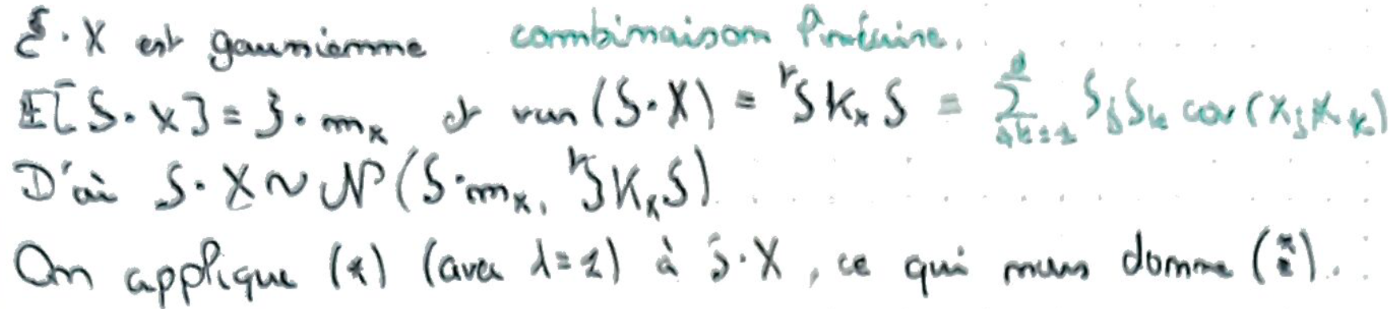 ξ · X est gaussienne combinaison linéaire.
𝔼[ξ · X] = ξ · m_X et var(ξ · X) = ᵗξ K_X ξ = ∑_{j,k=1}^{d} ξ_j ξ_k cov(X_j, X_k)
D'où ξ · X ~ 𝒩(ξ · m_X, ᵗξ K_X ξ)
On applique (*) (avec λ=1) à ξ · X, ce qui nous donne (**).